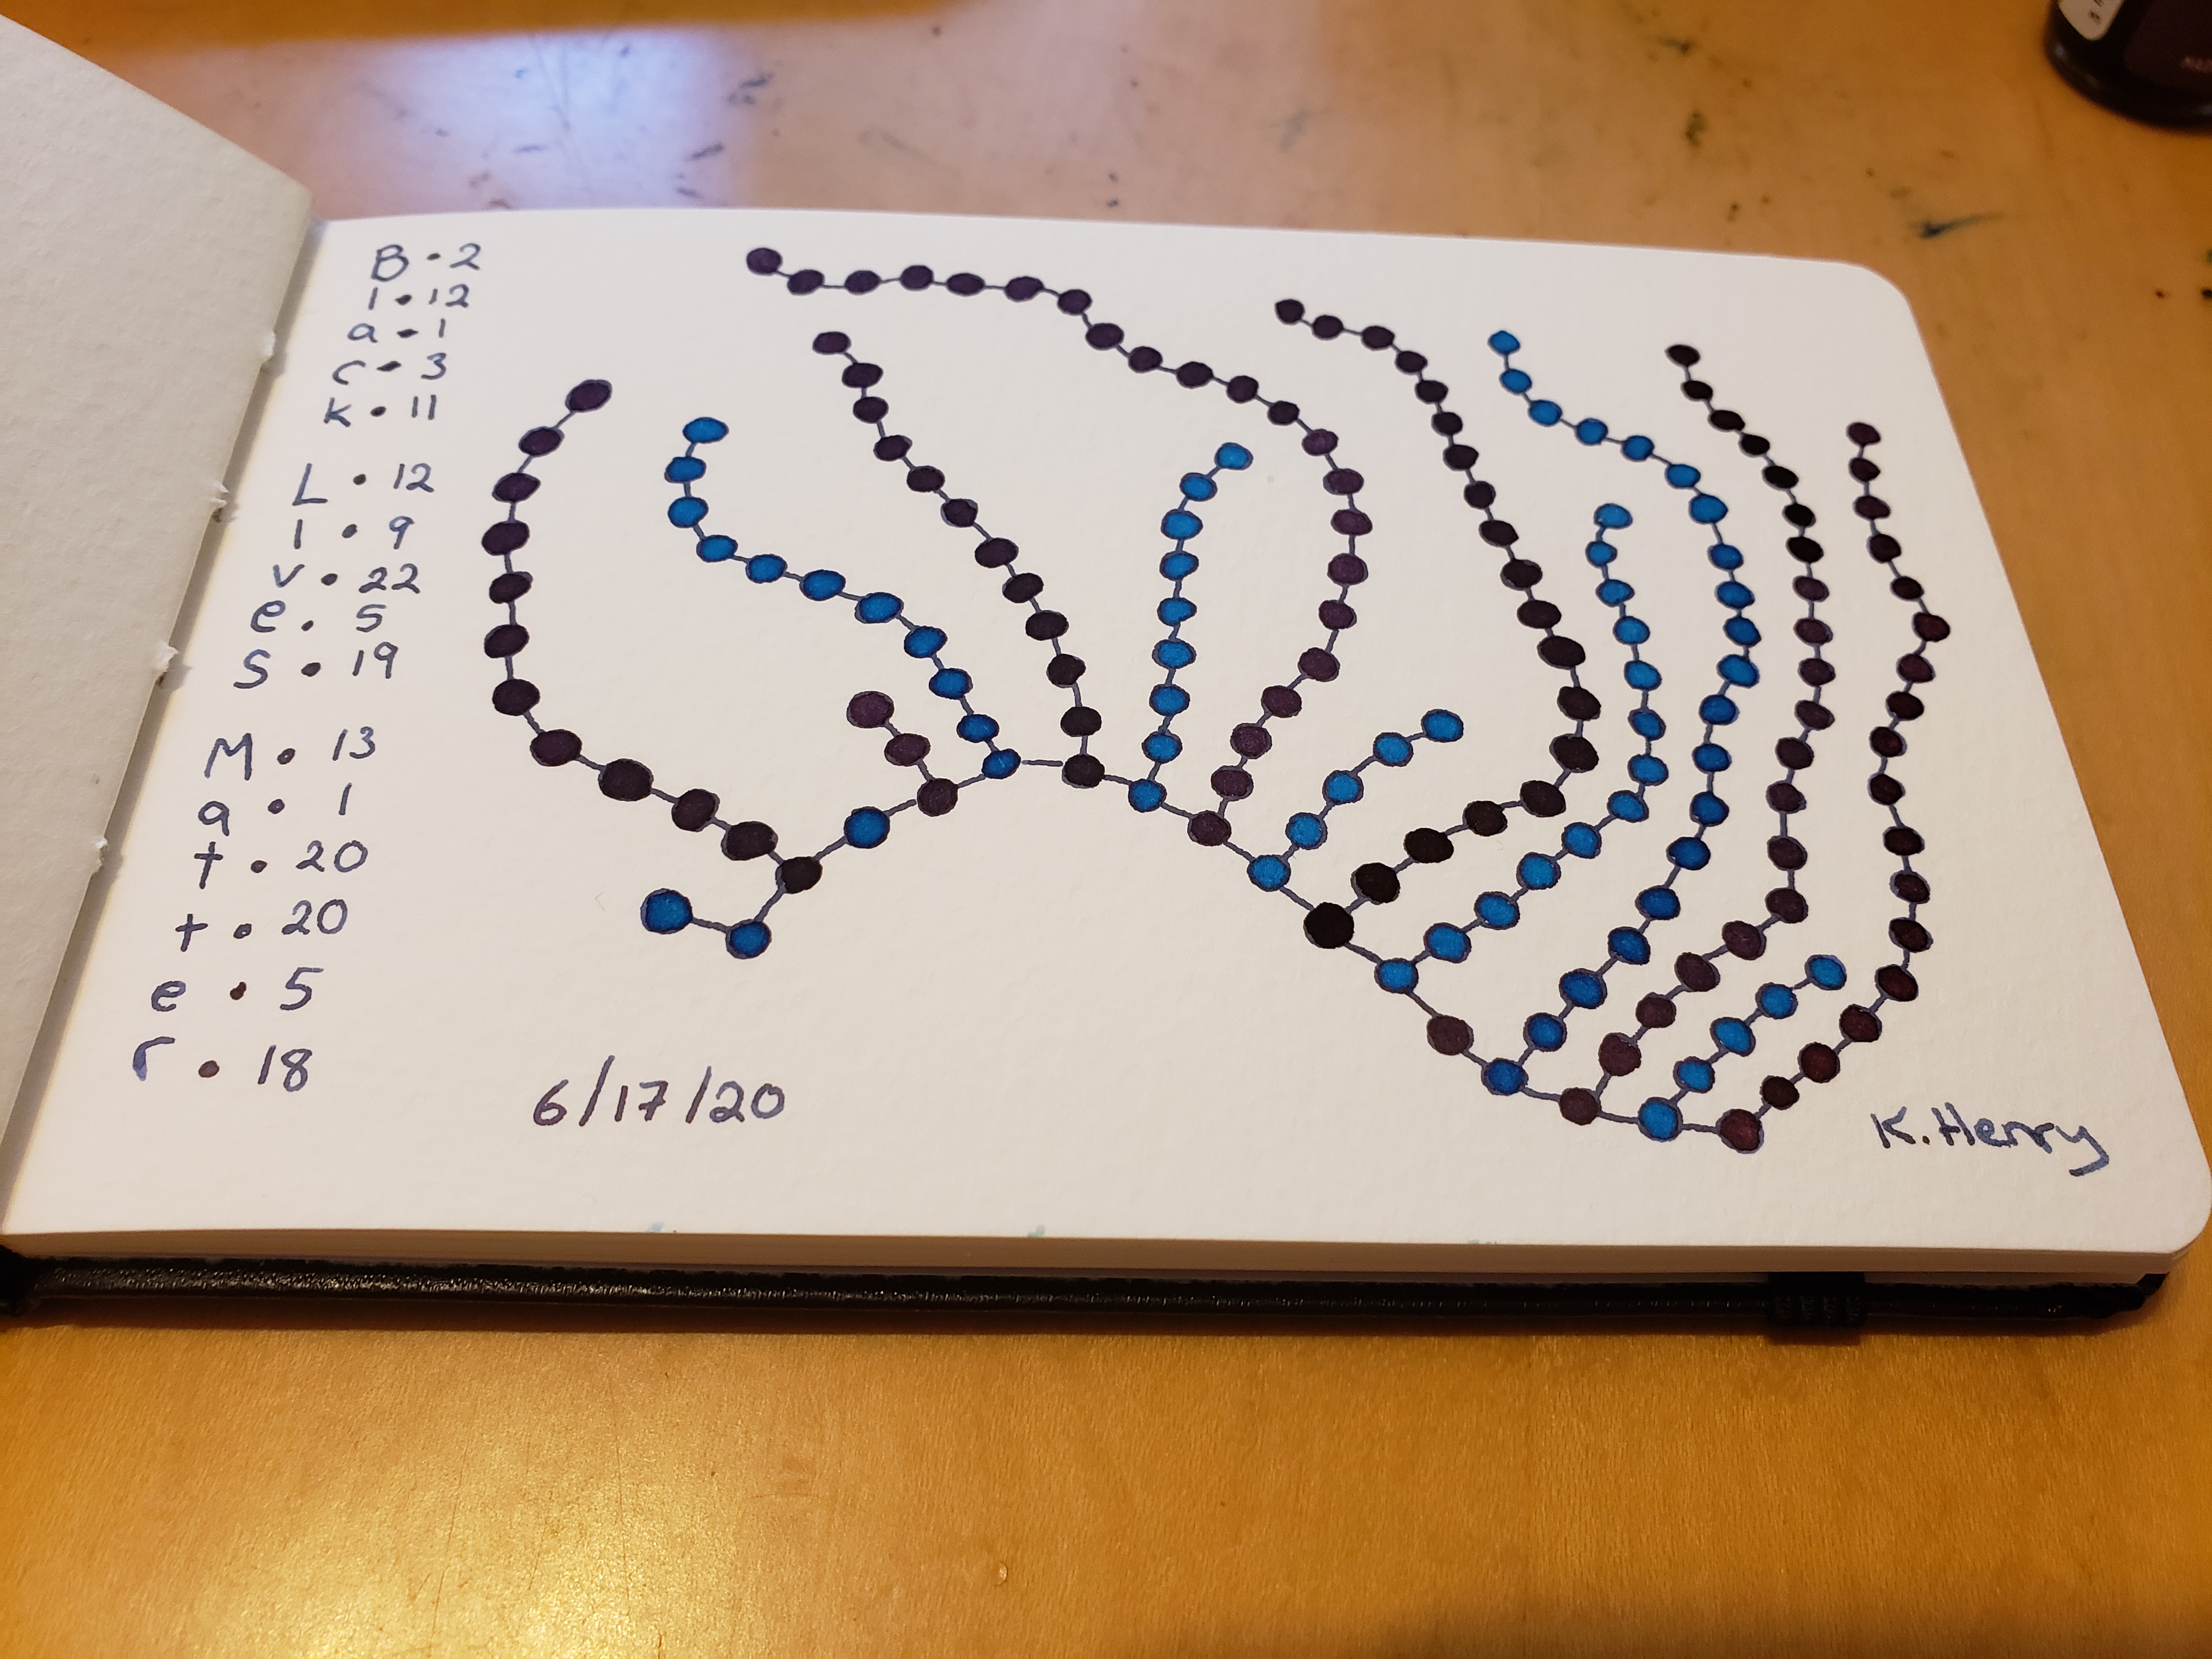 B • 2
l • 12
a • 1
c • 3
k • 11
L • 12
I • 9
v • 22
e • 5
s • 19
M • 13
a • 1
t • 20
t • 20
e • 5
r • 18
6/17/20
K. Henry